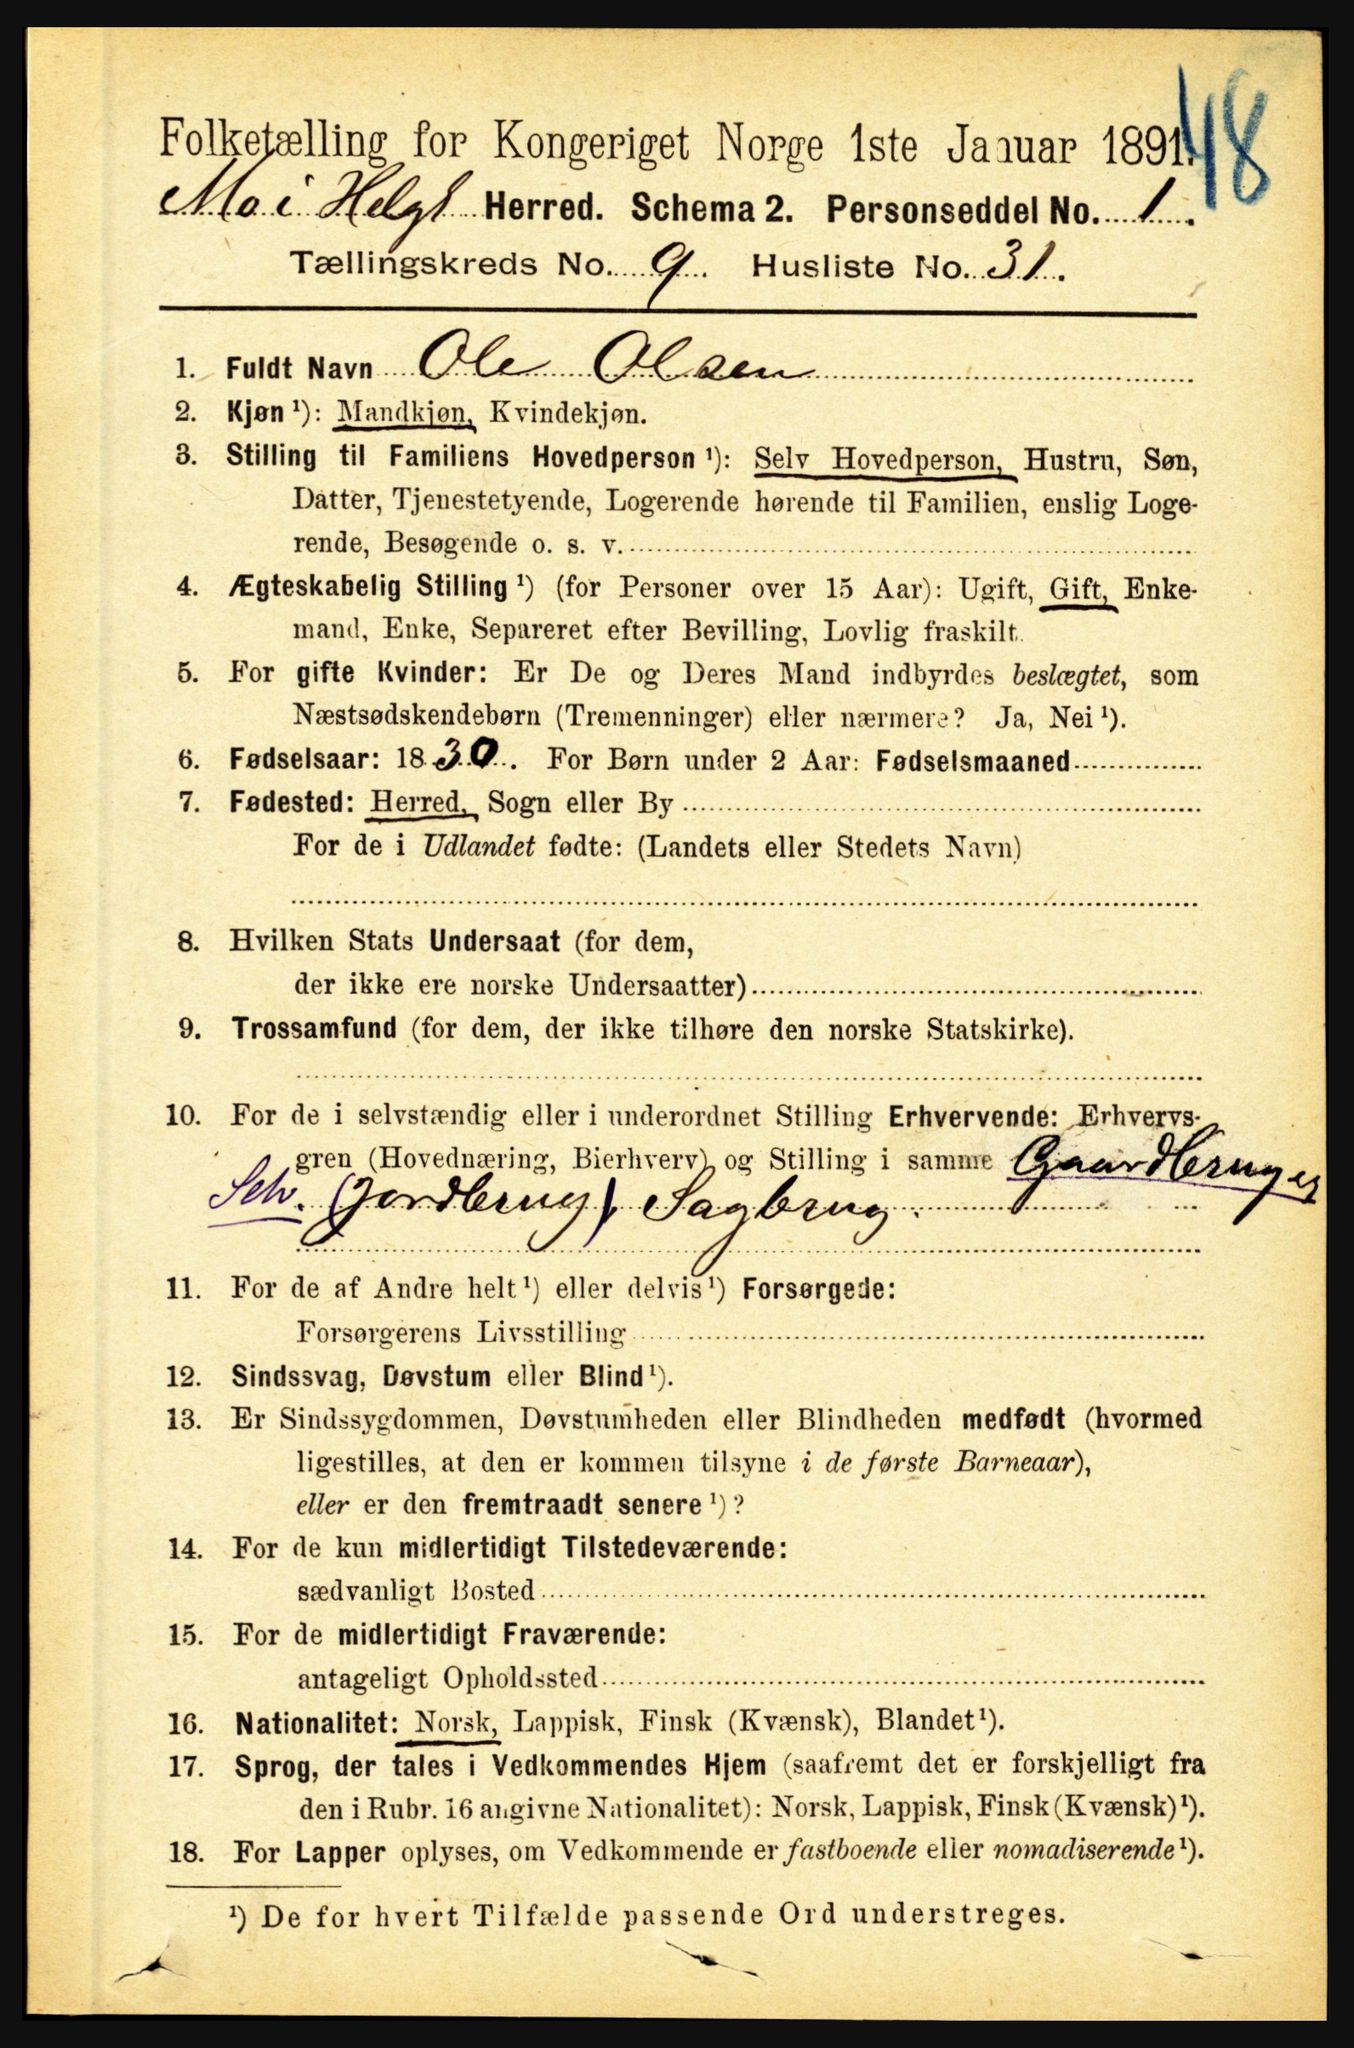 48
Folketælling for Kongeriget Norge 1ste Januar 1891.
Mo i Helgl Herred. Schema 2. Personseddel No. 1.
Tællingskreds No. 9. Husliste No. 31.
1. Fuldt Navn Ole Olsen
2. Kjøn ¹): Mandkjøn, Kvindekjøn.
3. Stilling til Familiens Hovedperson ¹): Selv Hovedperson, Hustru, Søn,
Datter, Tjenestetyende, Logerende hørende til Familien, enslig Loge-
rende, Besøgende o. s. v.
4. Ægteskabelig Stilling ¹) (for Personer over 15 Aar): Ugift, Gift, Enke-
mand, Enke, Separeret efter Bevilling, Lovlig fraskilt.
5. For gifte Kvinder: Er De og Deres Mand indbyrdes beslægtet, som
Næstsødskendebørn (Tremenninger) eller nærmere? Ja, Nei ¹).
6. Fødselsaar: 1830. For Børn under 2 Aar: Fødselsmaaned
7. Fødested: Herred, Sogn eller By
For de i Udlandet fødte: (Landets eller Stedets Navn)
8. Hvilken Stats Undersaat (for dem,
der ikke ere norske Undersaatter)
9. Trossamfund (for dem, der ikke tilhøre den norske Statskirke).
10. For de i selvstændig eller i underordnet Stilling Erhvervende: Erhvervs-
gren (Hovednæring, Bierhverv) og Stilling i samme Gaardbruger
Selv. (Jordbrug), Sagbrug.
11. For de af Andre helt ¹) eller delvis ¹) Forsørgede:
Forsørgerens Livsstilling
12. Sindssvag, Døvstum eller Blind ¹).
13. Er Sindssygdommen, Døvstumheden eller Blindheden medfødt (hvormed
ligestilles, at den er kommen tilsyne i de første Barneaar),
eller er den fremtraadt senere ¹)?
14. For de kun midlertidigt Tilstedeværende:
sædvanligt Bosted
15. For de midlertidigt Fraværende:
antageligt Opholdssted
16. Nationalitet: Norsk, Lappisk, Finsk (Kvænsk), Blandet ¹).
17. Sprog, der tales i Vedkommendes Hjem (saafremt det er forskjelligt fra
den i Rubr. 16 angivne Nationalitet): Norsk, Lappisk, Finsk (Kvænsk) ¹).
18. For Lapper oplyses, om Vedkommende er fastboende eller nomadiserende ¹).
¹) De for hvert Tilfælde passende Ord understreges.